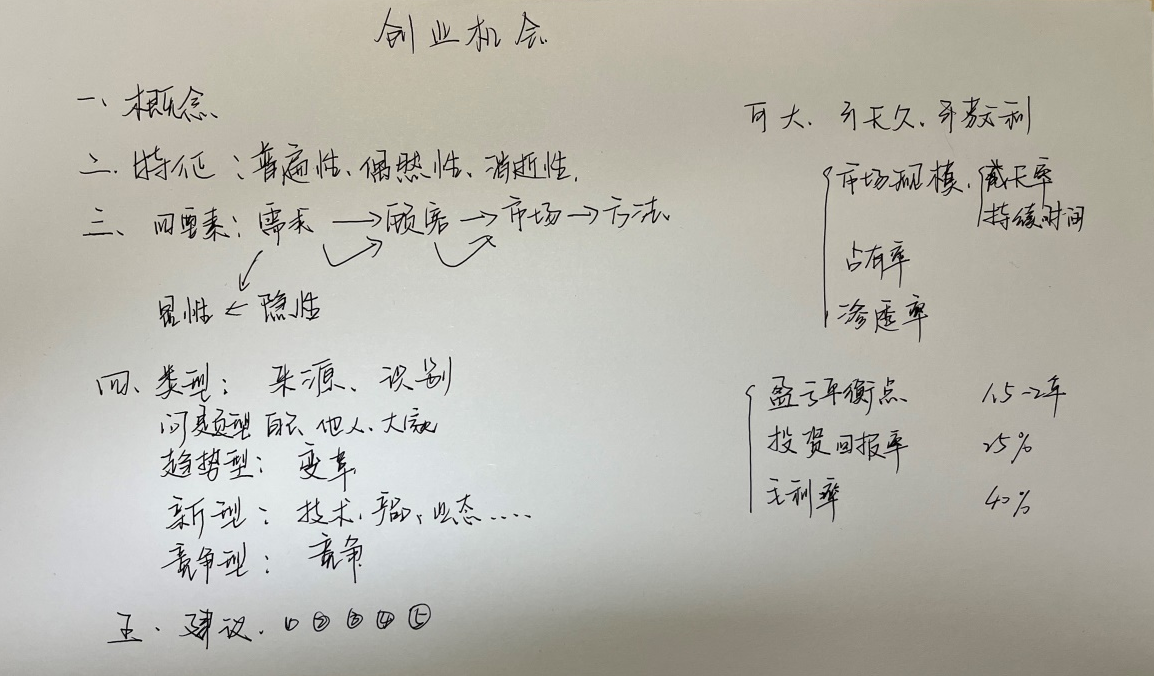 创业机会
一、概念
二、特征：普遍性、偶然性、消逝性.
三、四要素：需求→顾客→市场→方法.
显性←隐性
四、类型：来源、识别
问题型 自己、他人、大家
趋势型：变革
新型：技术、产品、业态....
竞争型：竞争
五、建议. ① ② ③ ④ ⑤
可大、可久、可利
市场规模、成长率
持续时间
占有率
渗透率
盈亏平衡点 1.5-2年
投资回报率 25%
毛利率 40%